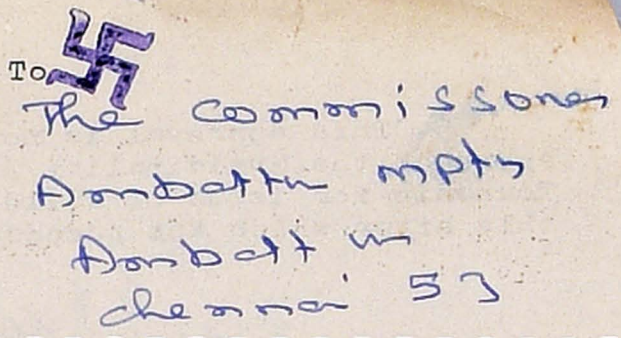 To
The Commissoner
Ambattur mpty
Ambattur
chennai 53